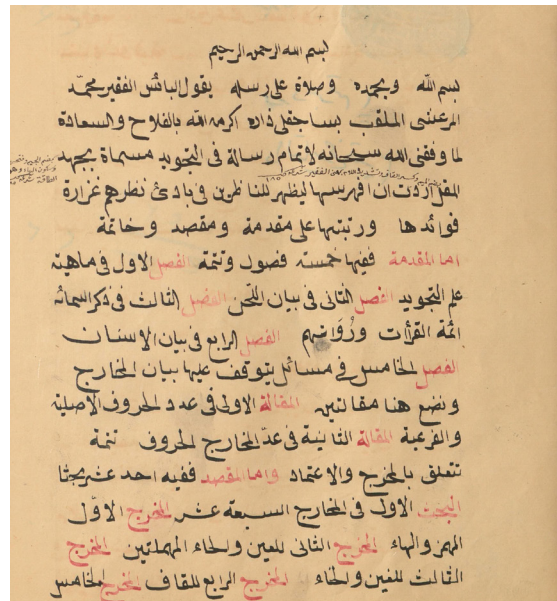 بسم الله الرحمن الرحيم
بسم الله وبحمده وصلاة على رسله يقول البائس الفقير محمد
المرعشى الملقب بساجقلى زاده اكرمه الله بالفلاح والسعادة
لما وفقنى الله سبحانه لاتمام رسالة فى التجويد مسماة بجهد
المقل اردت ان افهرسها ليظهر للناظرين فى بادئ نظرهم غزارة
فوائدها ورتبتها على مقدمة ومقصد وخاتمة
اما المقدمة ففيها خمسة فصول وتتمة الفصل الاول فى ماهية
علم التجويد الفصل الثانى فى بيان اللحن الفصل الثالث فى ذكر اسماء
ائمة القرأت ورُوَاتهم الفصل الرابع فى بيان الاسنان
الفصل الخامس فى مسائل يتوقف عليها بيان المخارج
ونضع هنا مقالتين المقالة الاولى فى عدد الحروف الاصلية
والفرعية المقالة الثانية فى عدّ المخارج الحروف تتمة
تتعلق بالمخرج والاعتماد واما المقصد ففيه احد عشر بحثا
البحث الاول فى المخارج السبعة عشر المخرج الاوّل
الهمز والهاء المخرج الثانى للعين والحاء المهملتين المخرج
الثالث للغين والخاء المخرج الرابع للقاف المخرج الخامس